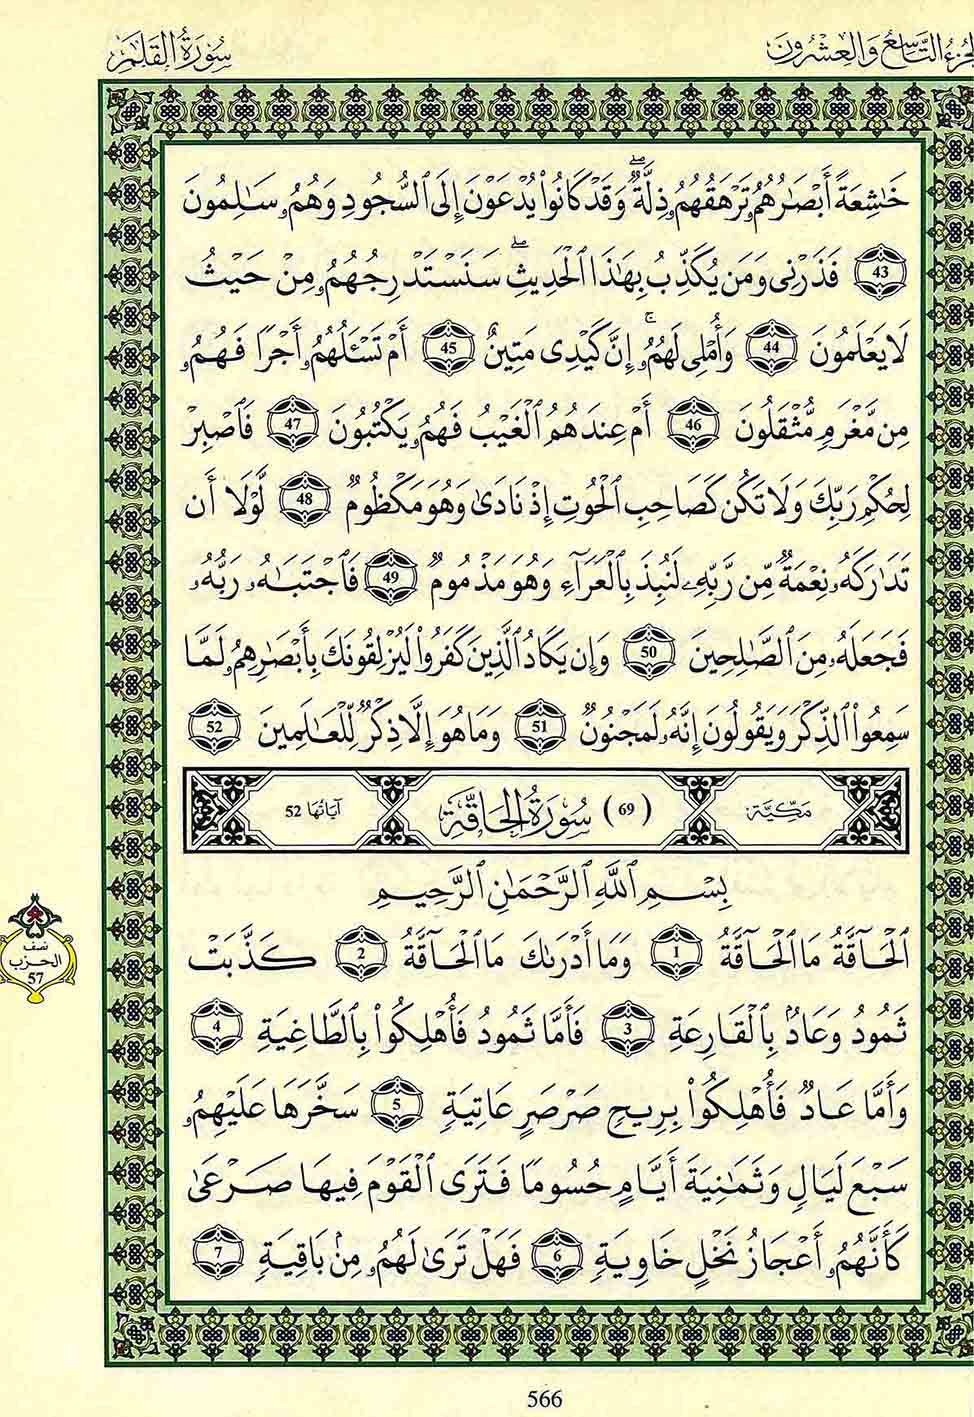 الجزء التاسع والعشرون
سورة القلم
خَٰشِعَةً أَبْصَٰرُهُمُۥ تَرْهَقُهُمُۥ ذِلَّةٌۖ وَقَدْ كَانُوا۟ يُدْعَوْنَ إِلَى ٱلسُّجُودِ وَهُمُۥ سَٰلِمُونَ
43 فَذَرْنِى وَمَن يُكَذِّبُ بِهَٰذَا ٱلْحَدِيثِۖ سَنَسْتَدْرِجُهُمُۥ مِنْ حَيْثُ
لَا يَعْلَمُونَ 44 وَأُمْلِى لَهُمُۥٓۚ إِنَّ كَيْدِى مَتِينٌ 45 أَمْ تَسْـَٔلُهُمُۥ أَجْرًا فَهُمُۥ
مِن مَّغْرَمٍ مُّثْقَلُونَ 46 أَمْ عِندَهُمُ ٱلْغَيْبُ فَهُمُۥ يَكْتُبُونَ 47 فَٱصْبِرْ
لِحُكْمِ رَبِّكَ وَلَا تَكُن كَصَاحِبِ ٱلْحُوتِ إِذْ نَادَىٰ وَهُوَ مَكْظُومٌ 48 لَّوْلَا أَن
تَدَارَكَهُۥ نِعْمَةٌ مِّن رَّبِّهِۦ لَنُبِذَ بِٱلْعَرَآءِ وَهُوَ مَذْمُومٌ 49 فَٱجْتَبَٰهُۥ رَبُّهُۥ
فَجَعَلَهُۥ مِنَ ٱلصَّٰلِحِينَ 50 وَإِن يَكَادُ ٱلَّذِينَ كَفَرُوا۟ لَيُزْلِقُونَكَ بِأَبْصَٰرِهِمُۥ لَمَّا
سَمِعُوا۟ ٱلذِّكْرَ وَيَقُولُونَ إِنَّهُۥ لَمَجْنُونٌ 51 وَمَا هُوَ إِلَّا ذِكْرٌ لِّلْعَٰلَمِينَ 52
مكية (69) سورة الحاقة آياتها 52
بِسْمِ ٱللَّهِ ٱلرَّحْمَٰنِ ٱلرَّحِيمِ
ٱلْحَآقَّةُ مَا ٱلْحَآقَّةُ 1 وَمَا أَدْرَىٰكَ مَا ٱلْحَآقَّةُ 2 كَذَّبَتْ
ثَمُودُ وَعَادٌۢ بِٱلْقَارِعَةِ 3 فَأَمَّا ثَمُودُ فَأُهْلِكُوا۟ بِٱلطَّاغِيَةِ 4
وَأَمَّا عَادٌ فَأُهْلِكُوا۟ بِرِيحٍ صَرْصَرٍ عَاتِيَةٍ 5 سَخَّرَهَا عَلَيْهِمُۥ
سَبْعَ لَيَالٍ وَثَمَٰنِيَةَ أَيَّامٍ حُسُومًا فَتَرَى ٱلْقَوْمَ فِيهَا صَرْعَىٰ
كَأَنَّهُمُۥ أَعْجَازُ نَخْلٍ خَاوِيَةٍ 6 فَهَلْ تَرَىٰ لَهُمُۥ مِنۢ بَاقِيَةٍ 7
نصف
الحزب
57
566